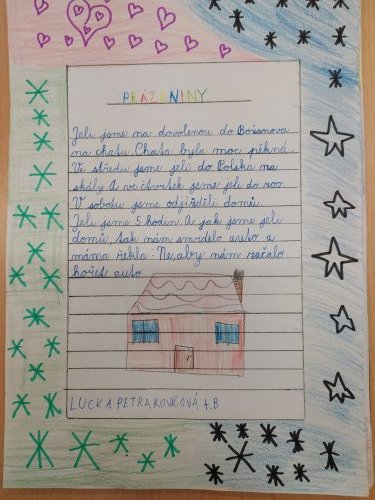 PRÁZDNINY
Jeli jsme na dovolenou do Božanova
na chatu. Chata byla moc pěkná.
Ve středu jsme jeli do Polska na
skály. A ve čtvrtek jsme jeli do zoo.
V sobotu jsme odjížděli domů.
Jeli jsme 5 hodin. A jak jsme jeli
domů, tak nám smrdělo auto a
máma řekla: Ne, aby nám začalo
hořet auto.
LUCKA PETRAKOVIČOVÁ 4.B